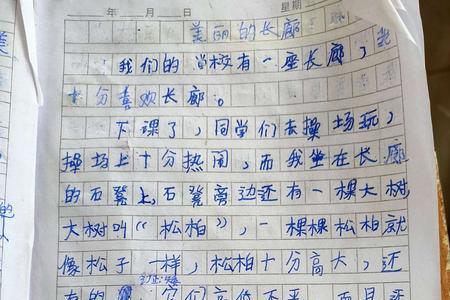 年 月 日 星期
美丽的长廊
我们的学校有一座长廊，我
十分喜欢长廊。
下课了，同学们去操场玩，
操场上十分热闹，而我坐在长廊
的石凳上，石凳旁边还有一棵大树，
大树叫“松柏”，一棵棵松柏就
像松子一样，松柏十分高大，还
有的 们高低不